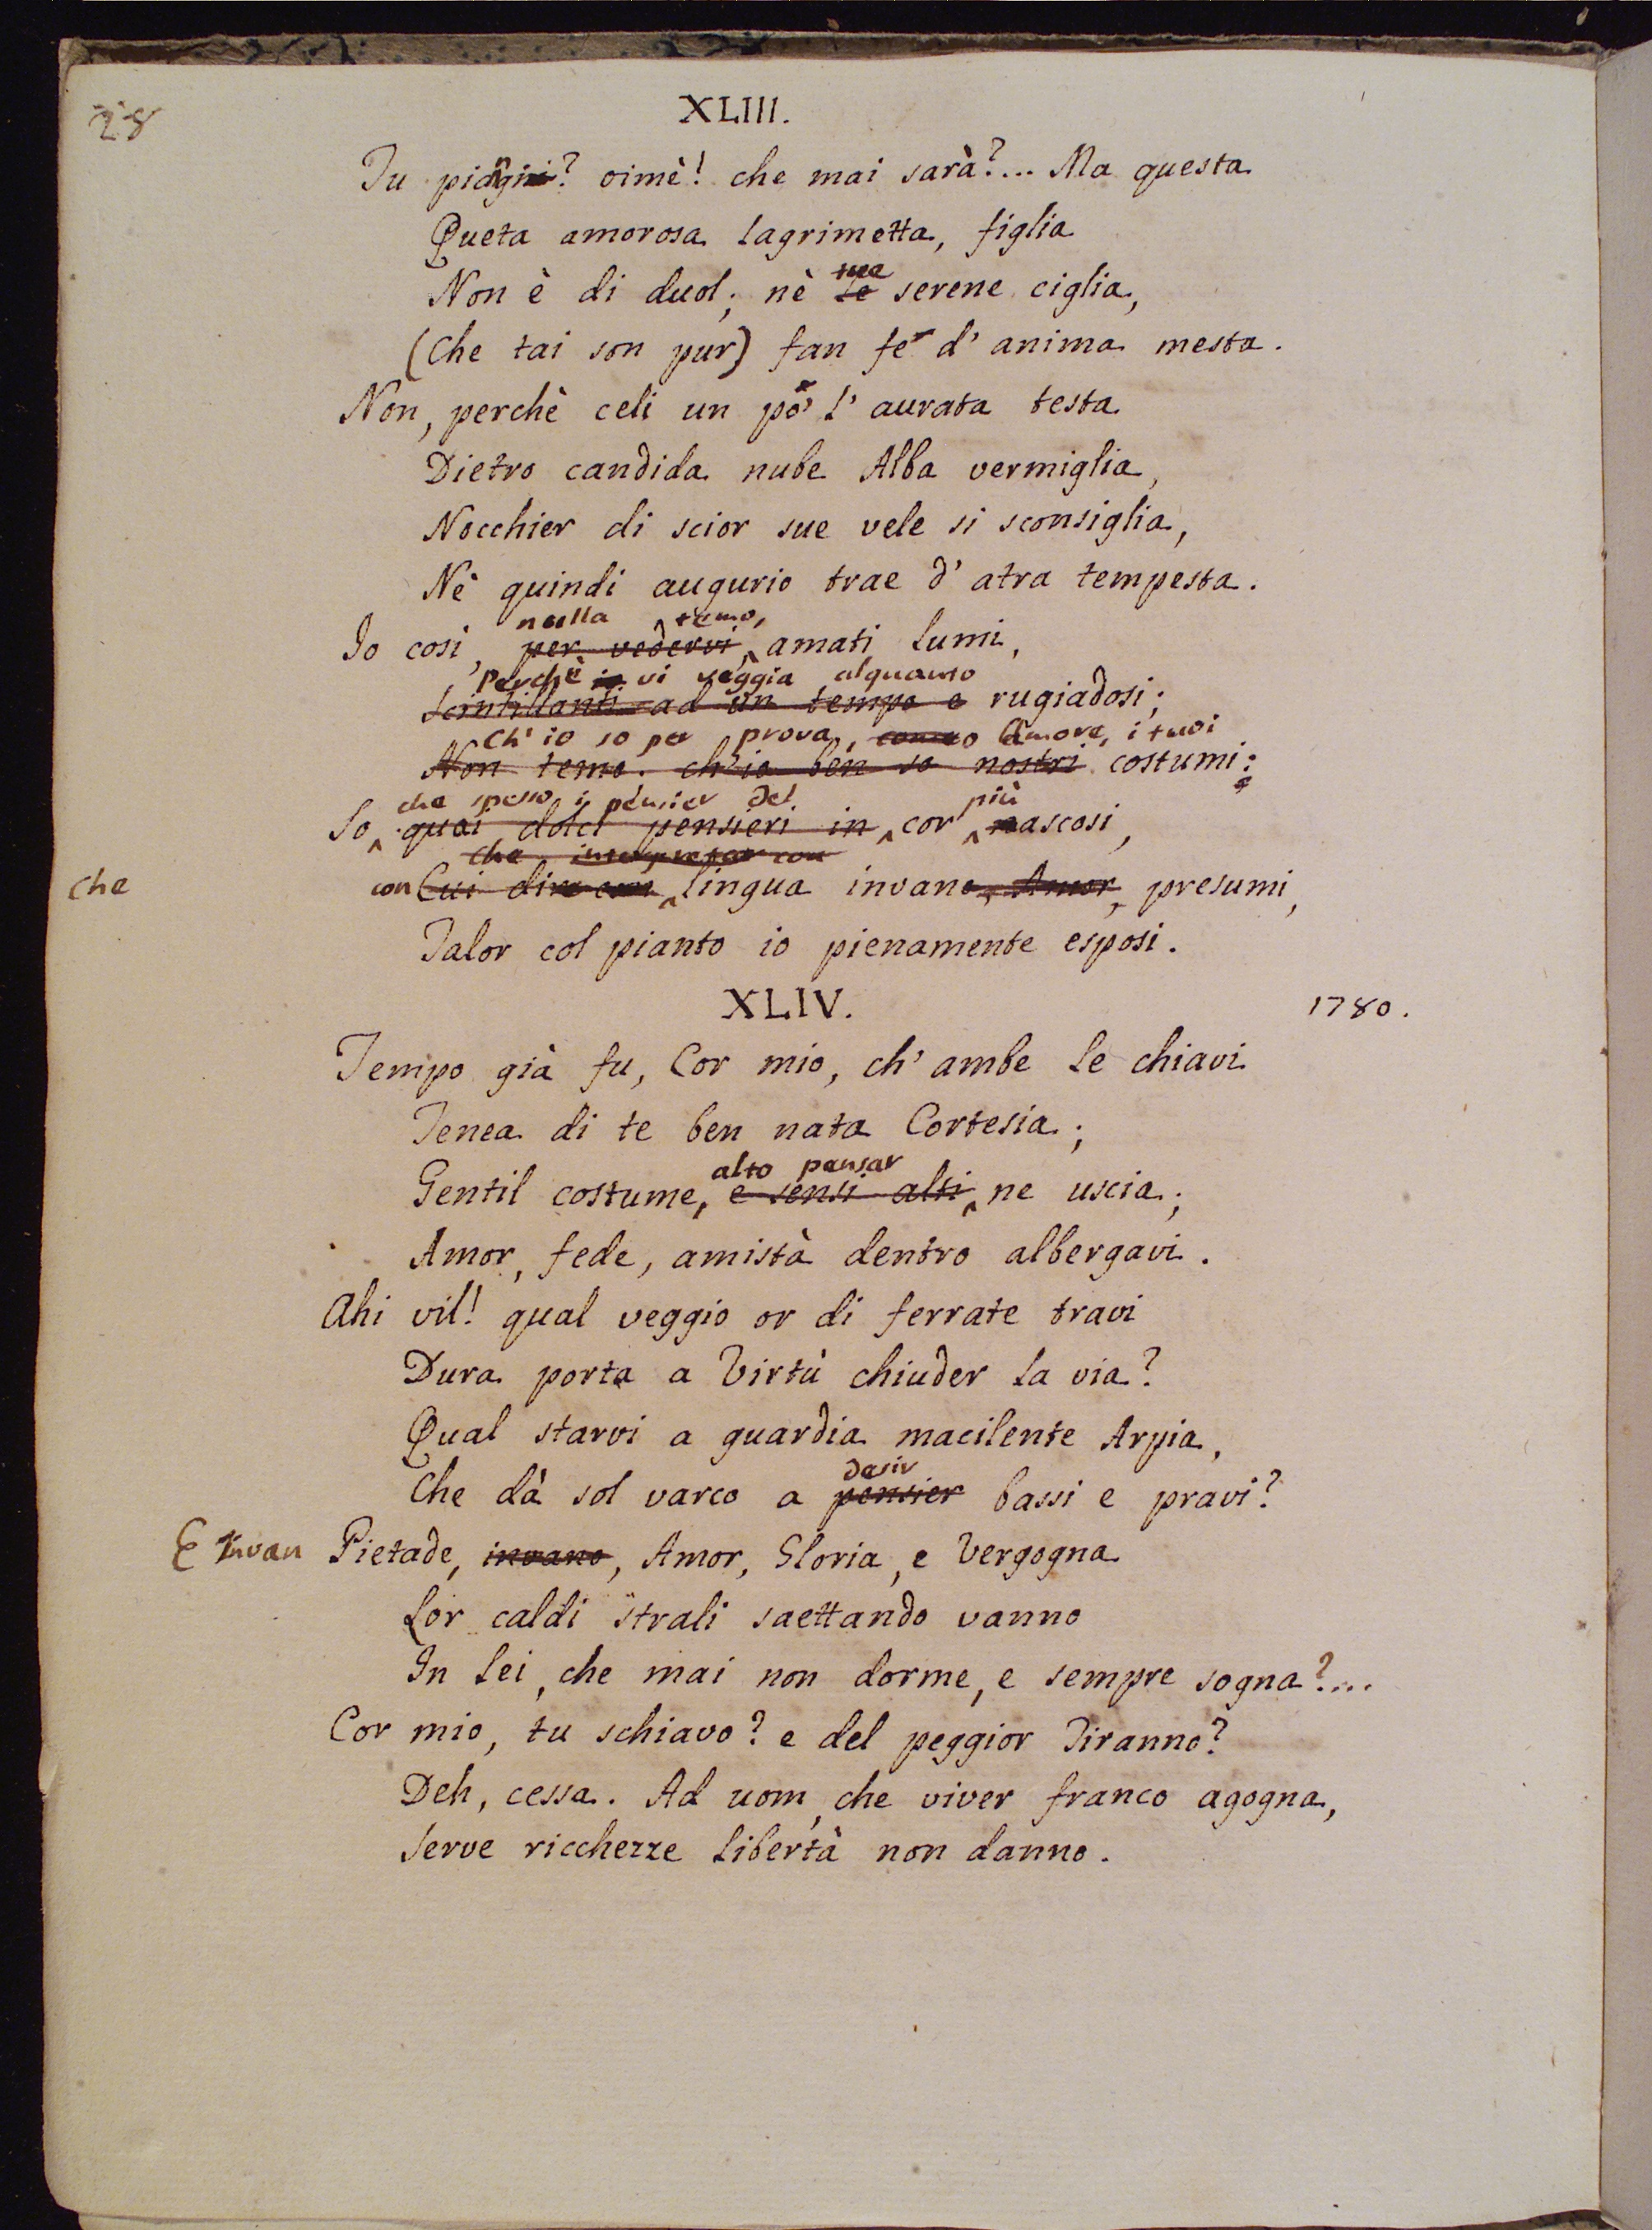 28
XLIII.
Tu piagni? oimè! che mai sarà?... Ma questa
Queta amorosa lagrimetta, figlia
tue
Non è di duol; nè le serene ciglia,
(Che tai son pur) fan fe d' anima mesta.
Non, perchè celi un po' l' aurata testa
Dietro candida nube Alba vermiglia,
Nocchier di scior sue vele si sconsiglia,
Nè quindi augurio trae d' atra tempesta.
nulla temo,
Io così, per vedervi, amati lumi,
Perchè io vi veggia alquanto
Scintillanti ad un tempo e rugiadosi;
Ch' io so per prova, Amore, i tuoi
Non temo. ch' io ben so nostri costumi:
che spesso i pensier del più
So quai dolci pensieri in cor nascosi,
che interpretar con
che con Cui dire con lingua invano, Amor, presumi,
Talor col pianto io pienamente esposi.
XLIV. 1780.
Tempo già fu, Cor mio, ch' ambe le chiavi
Tenea di te ben nata Cortesia;
alto pensar
Gentil costume, e sensi alti ne uscia;
Amor, fede, amistà dentro albergavi.
Ahi vil! qual veggio or di ferrate travi
Dura porta a Virtù chiuder la via?
Qual starvi a guardia macilente Arpia,
desir
Che dà sol varco a pensier bassi e pravi?
E invan Pietade, invano, Amor, Gloria, e Vergogna
Lor caldi strali saettando vanno
In lei, che mai non dorme, e sempre sogna?...
Cor mio, tu schiavo? e del peggior Tiranno?
Deh, cessa. Ad uom, che viver franco agogna,
Serve ricchezze libertà non danno.